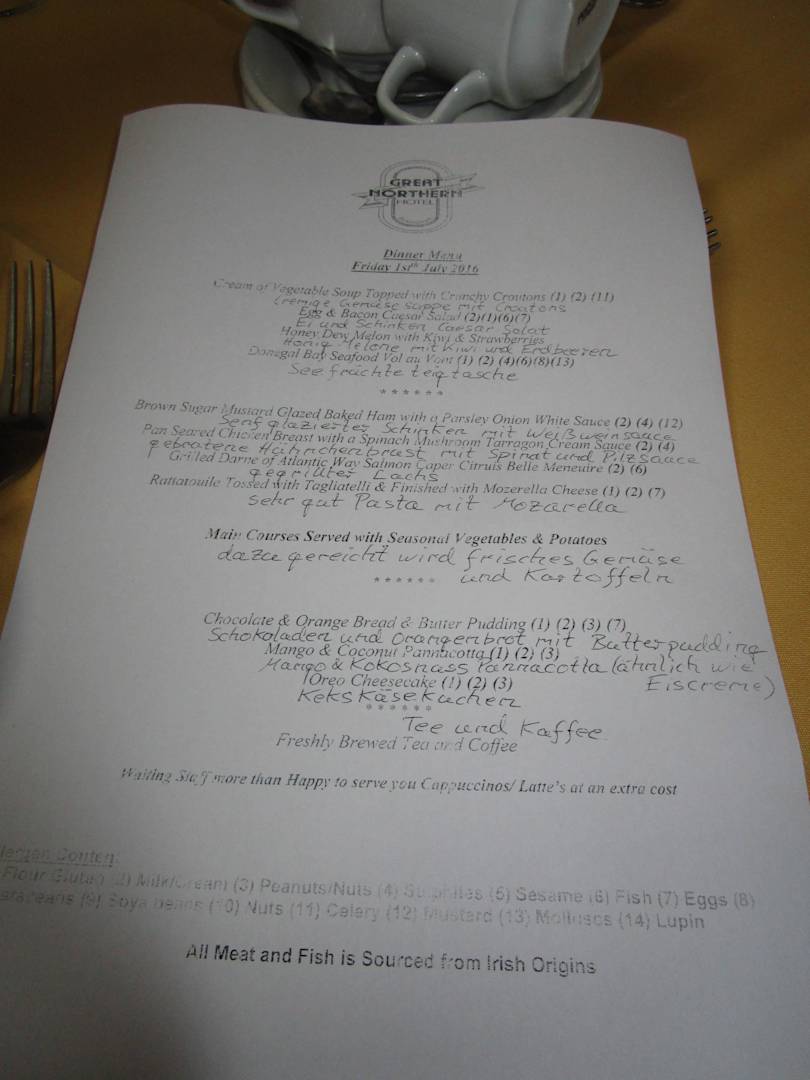 GREAT
NORTHERN
HOTEL
Dinner Menu
Friday 1stth July 2016
Cream of Vegetable Soup Topped with Crunchy Croutons (1) (2) (11)
Cremige Gemüse suppe mit Croutons
Egg & Bacon Caesar Salad (2)(1)(6)(7)
Ei und Schinken Caesar Salat
Honey Dew Melon with Kiwi & Strawberries
Honig Melone mit Kiwi und Erdbeeren
Donegal Bay Seafood Vol au Vont (1) (2) (4)(6)(8)(13)
Seefrüchte teigtasche
******
Brown Sugar Mustard Glazed Baked Ham with a Parsley Onion White Sauce (2) (4) (12)
Senfglazierter Schinken mit Weißweinsauce
Pan Seared Chicken Breast with a Spinach Mushroom Tarragon Cream Sauce (2) (4)
gebratene Hähnchenbrust mit Spinat und Pilzsauce
Grilled Darne of Atlantic Way Salmon Caper Citruis Belle Meneuire (2) (6)
gegrillter Lachs
Rattatouile Tossed with Tagliatelli & Finished with Mozerella Cheese (1) (2) (7)
sehr gut Pasta mit Mozarella
Main Courses Served with Seasonal Vegetables & Potatoes
dazu gereicht wird frisches Gemüse
****** und Kartoffeln
Chocolate & Orange Bread & Butter Pudding (1) (2) (3) (7)
Schokoladen und Orangenbrot mit Butterpudding
Mango & Coconut Pannacotta (1) (2) (3)
Mango & Kokosnass Pannacotta (ähnlich wie
Oreo Cheesecake (1) (2) (3) Eiscreme)
Keks Käsekuchen
******
Tee und Kaffee
Freshly Brewed Tea and Coffee
Waiting Staff more than Happy to serve you Cappuccinos/ Latte's at an extra cost
Content:
Flour Gluten (2) Milk/Cream (3) Peanuts/Nuts (4) Sulphites (5) Sesame (6) Fish (7) Eggs (8)
(9) Soya beans (10) Nuts (11) Celery (12) Mustard (13) Molluscs (14) Lupin
All Meat and Fish is Sourced from Irish Origins